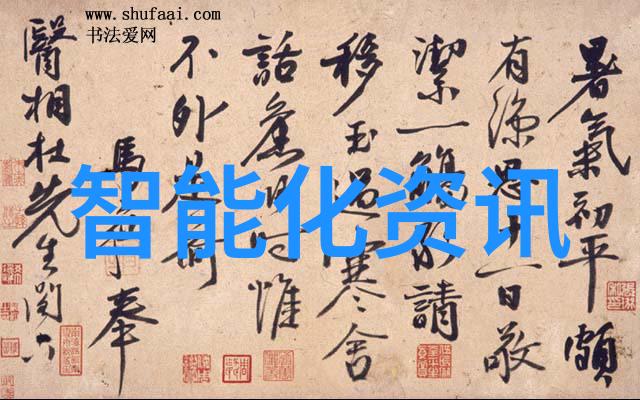 www.shufaai.com
书法爱网
智能化资讯
暑氣初平頗
有涼思十一日敬
潔一觴請
移玉過寒舍
話舊時惟
不外是荷
馬奉
醫相杜先生閣下